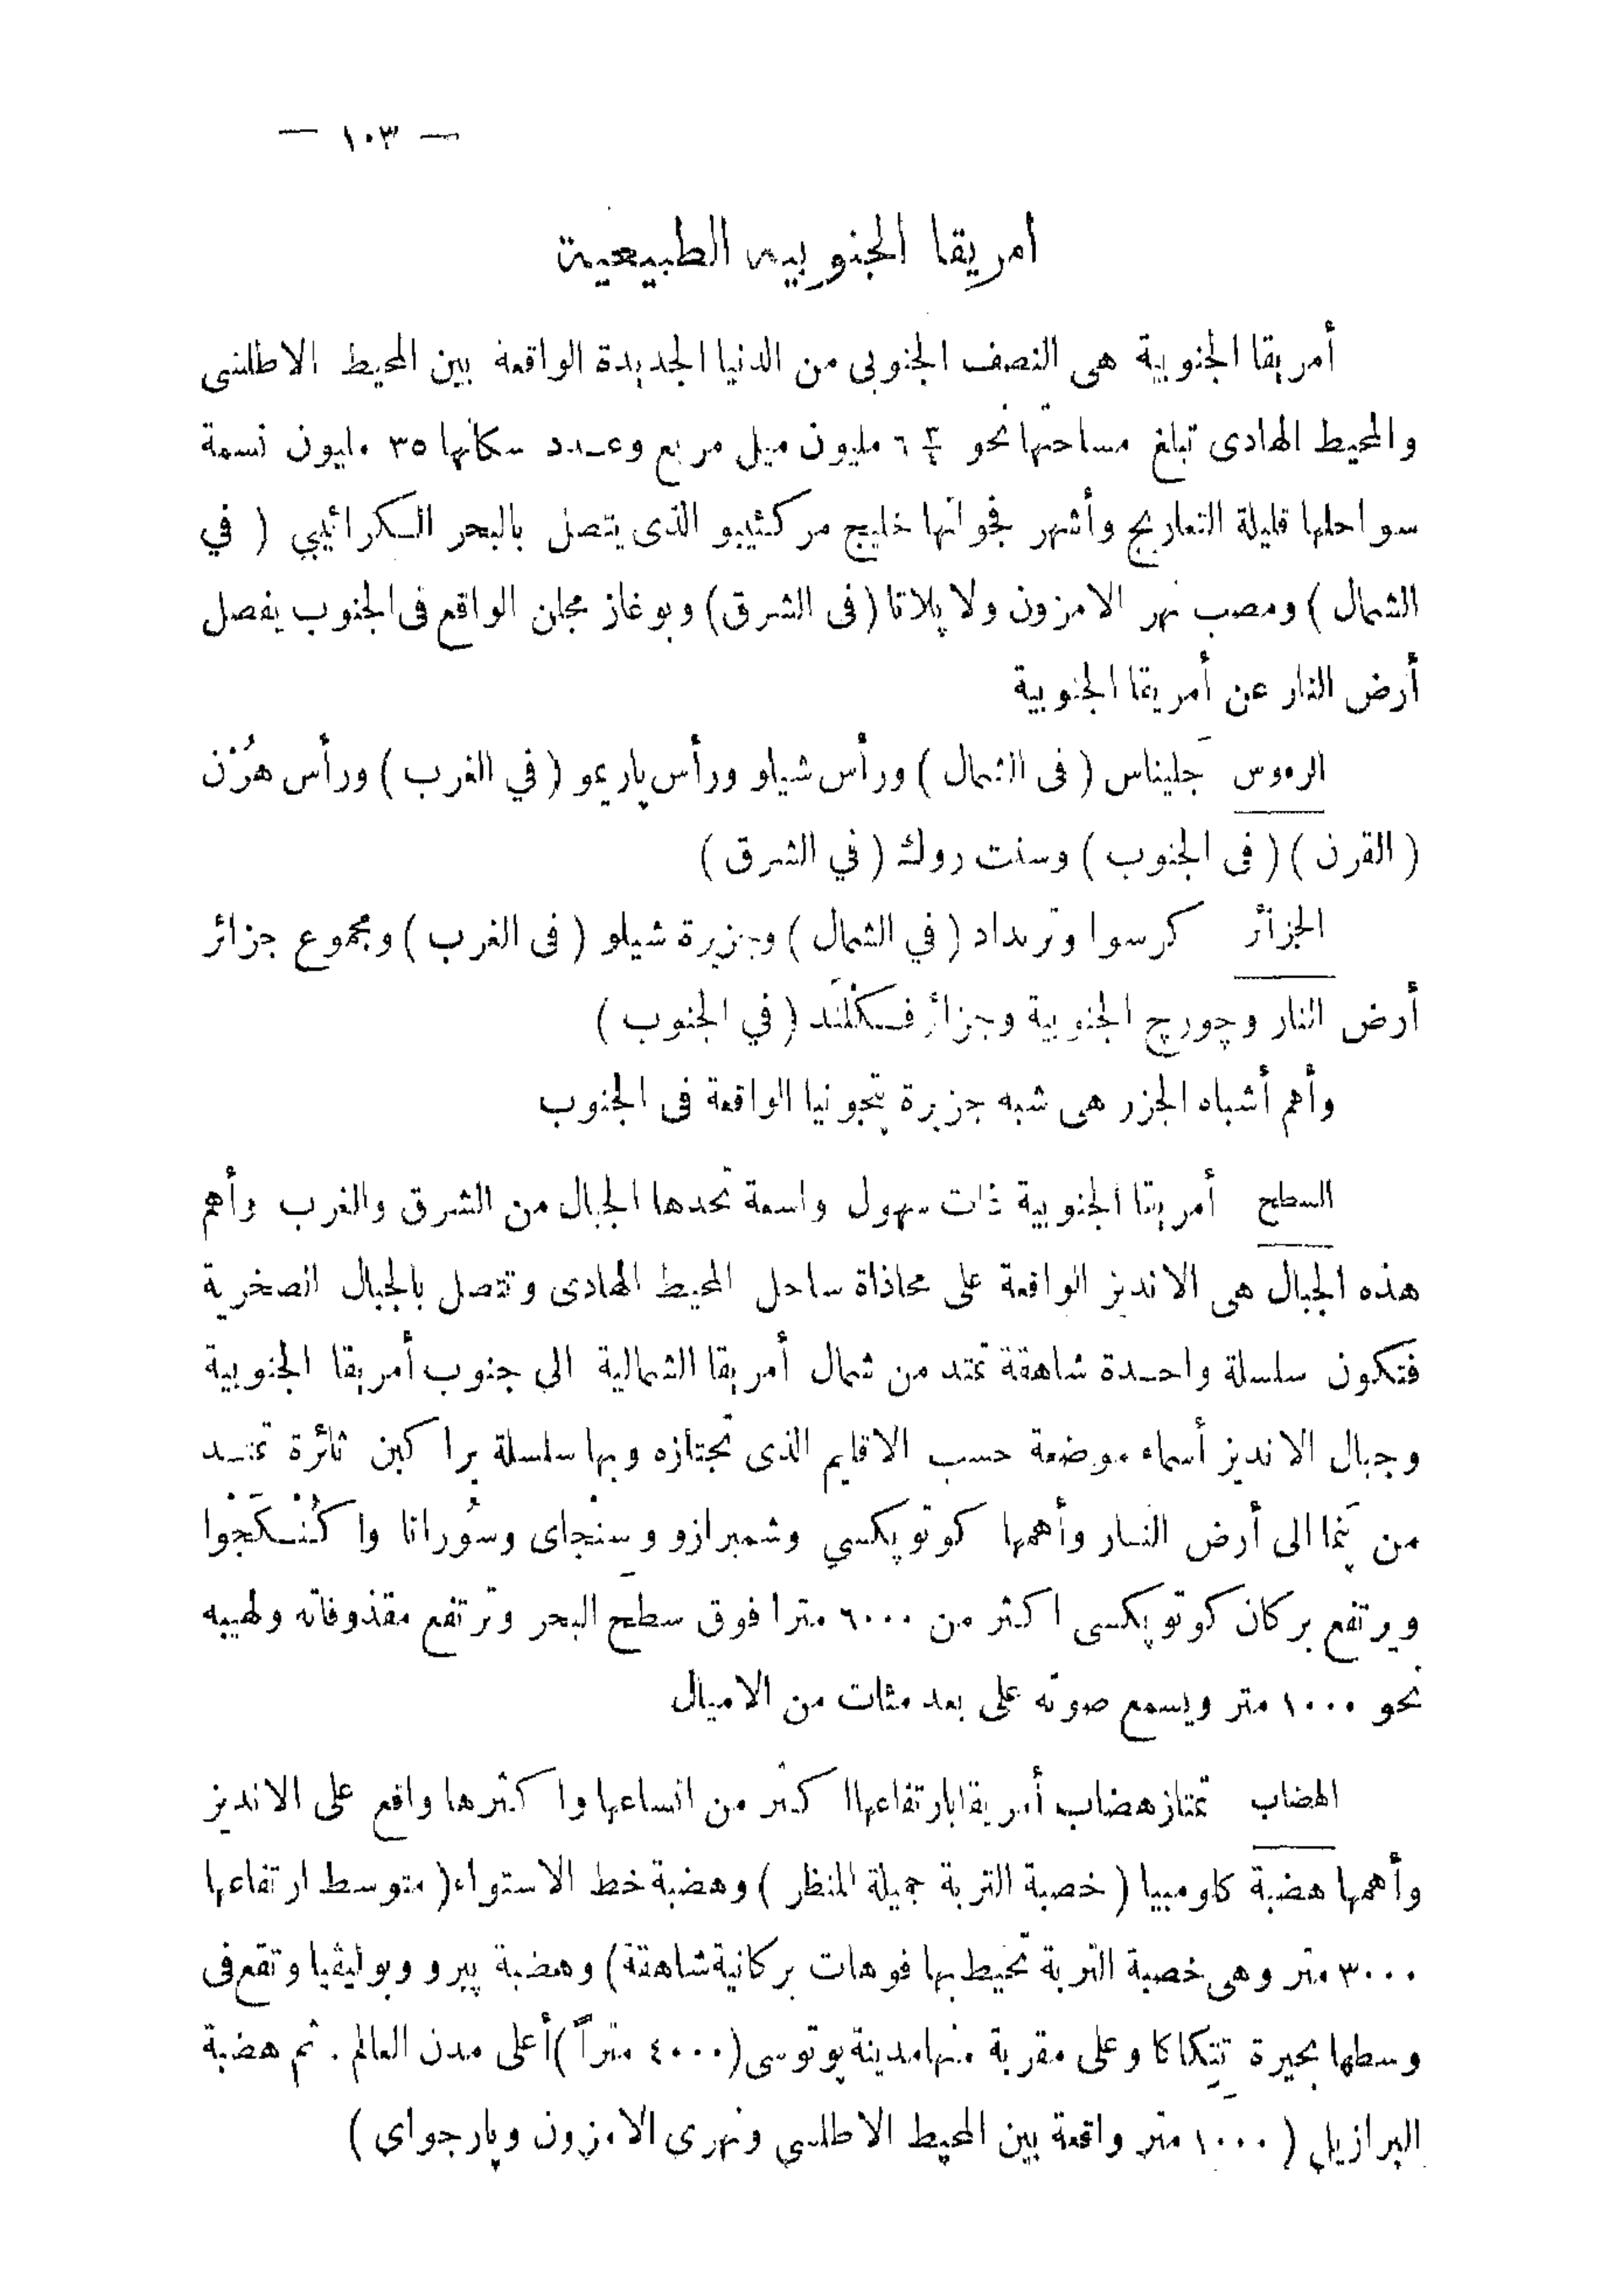 — ١٠٣ —
امريقا الجنوبيه الطبيعية
أمريقا الجنوبية هى النصف الجنوبى من الدنيا الجديدة الواقعة بين المحيط الاطلسى
والمحيط الهادى تبلغ مساحتها نحو ٦ مليون ميل مربع وعدد سكانها ٣٥ مليون نسمة
سواحلها قليلة التعاريج وأشهر فجواتها خليج مركثيبو الذى يتصل بالبحر الكرائيبي (في
الشمال) ومصب نهر الامزون ولا پلاتا (فى الشرق) وبوغاز مجلن الواقع فى الجنوب يفصل
أرض النار عن أمريقا الجنوبية
الرءوس جَليناس (فى الشمال) ورأس شيلو ورأس پاريمو (في الغرب) ورأس هُرْن
(القرن) (فى الجنوب) وسنت روك (في الشرق)
الجزائر كرسوا وترنداد (في الشمال) وجزيرة شيلو (فى الغرب) ومجموع جزائر
أرض النار وچورچ الجنوبية وجزائر فسكْلَند (في الجنوب)
وأهم أشباه الجزر هى شبه جزيرة پتجونيا الواقعة فى الجنوب
السطح أمريقا الجنوبية ذات سهول واسعة تحدها الجبال من الشرق والغرب وأهم
هذه الجبال هى الانديز الواقعة على محاذاة ساحل المحيط الهادى وتتصل بالجبال الصخرية
فتكون سلسلة واحدة شاهقة تمتد من شمال أمريقا الشمالية الى جنوب أمريقا الجنوبية
وجبال الانديز أسماء موضعة حسب الاقايم الذى تجتازه وبها سلسلة براكين ثائرة تمتد
من پَنما الى أرض النار وأهمها كوتوپكسي وشمبرازو وسنْجاى وسُورانا واكُنْكَجْوا
ويرتفع بركان كوتوپكسى اكثر من ٦٠٠٠ مترا فوق سطح البحر وترتفع مقذوفاته ولهيبه
نحو ١٠٠٠ متر ويسمع صوته على بعد مئات من الاميال
الهضاب تمتاز هضاب أمريقا بارتفاعها اكثر من اتساعها واكثرها واقع على الانديز
وأهمها هضبة كاومبيا (خصبة التربة جميلة المنظر) وهضبة خط الاستواء (متوسط ارتفاعها
٣٠٠٠ متر وهى خصبة التربة تحيط بها فوهات بركانية شاهقة) وهضبة پيرو وبوليڤيا وتقع فى
وسطها بحيرة تِتِكاكا وعلى مقربة منها مدينة پوتوسى (٤٠٠٠ متراً) أعلى مدن العالم. ثم هضبة
البرازيل (١٠٠٠ متر واقعة بين المحيط الاطلسى ونهرى الامزون وپارجواى)